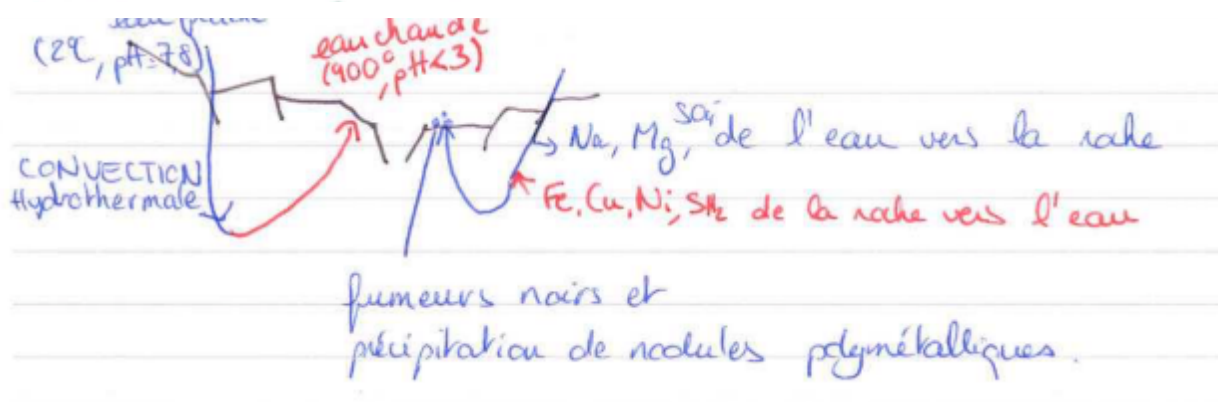 (2°C, pH=7,8)
eau chaude
(900°, pH<3)
CONVECTION
Hydrothermale
Na, Mg, de l'eau vers la roche
Fe, Cu, Ni, SH2 de la roche vers l'eau
fumeurs noirs et
précipitation de nodules polymétalliques.